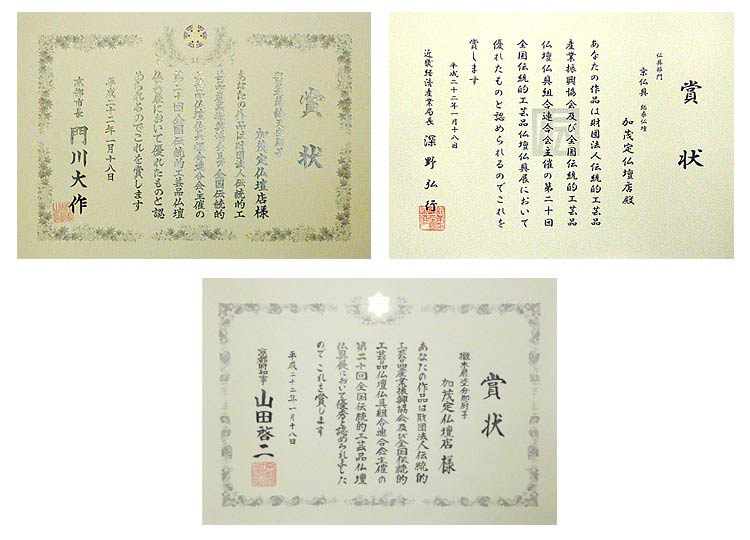 賞状
加茂定仏壇店様
あなたの作品は財団法人伝統的工
芸品産業振興協会及び全国伝統的
工芸品仏壇仏具組合連合会主催の
第二十回全国伝統的工芸品仏壇
仏具展において優れたものと認
められるのでこれを賞します
平成二十二年一月十八日
京都市長 門川大作
賞状
仏具部門
京仏具 総華仏壇
加茂定仏壇店殿
あなたの作品は財団法人伝統的工芸品
産業振興協会及び全国伝統的工芸品
仏壇仏具組合連合会主催の第二十回
全国伝統的工芸品仏壇仏具展において
優れたものと認められるのでこれを
賞します
平成二十二年一月十八日
近畿経済産業局長 深野弘行
賞状
加茂定仏壇店様
あなたの作品は財団法人伝統的
工芸品産業振興協会及び全国伝統的
工芸品仏壇仏具組合連合会主催の
第二十回全国伝統的工芸品仏壇
仏具展において優秀と認められました
のでこれを賞します
平成二十二年一月十八日
京都府知事 山田啓二